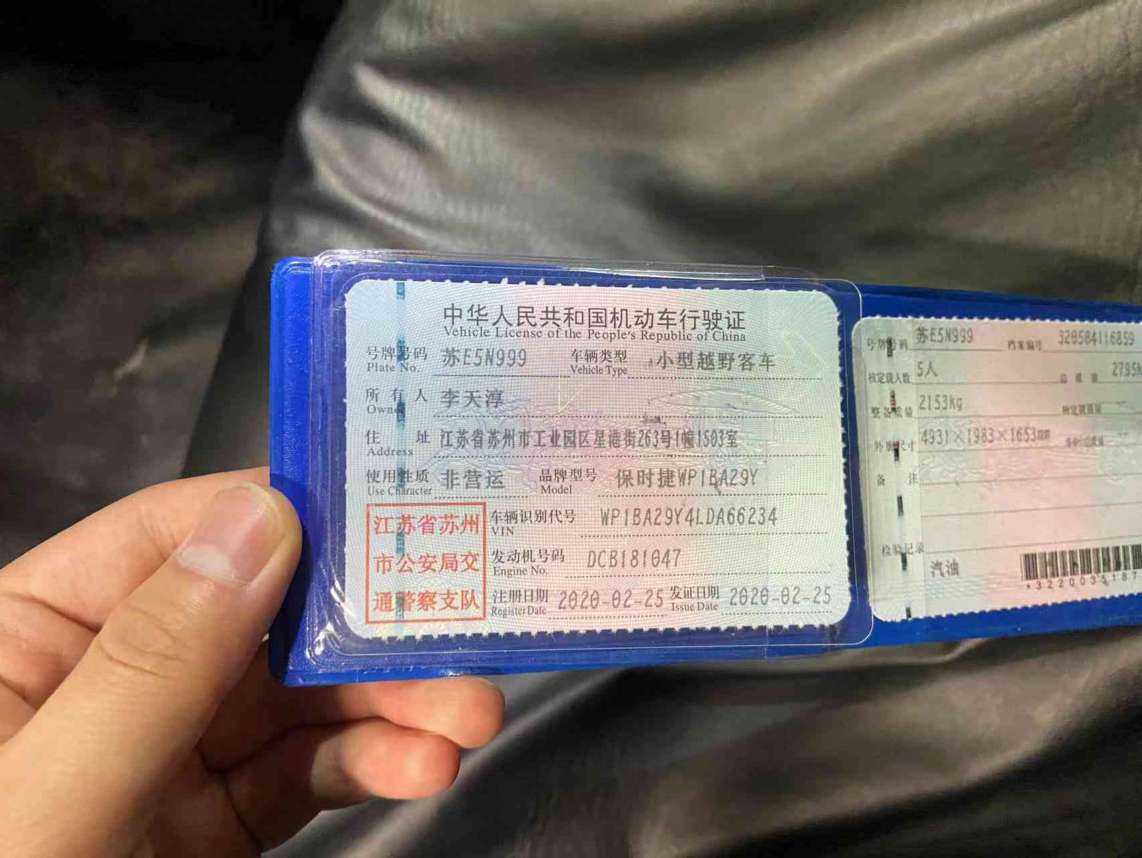 中华人民共和国机动车行驶证
Vehicle License of the People's Republic of China
号牌号码 苏E5N999 车辆类型 小型越野客车
Plate No. Vehicle Type
所有人 李天淳
Owner
住址 江苏省苏州市工业园区星港街263号1幢1503室
Address
使用性质 非营运 品牌型号 保时捷WP1BA29Y
Use Character Model
江苏省苏州
市公安局交
通警察支队
车辆识别代号 WP1BA29Y4LDA66234
VIN
发动机号码 DCB181047
Engine No.
注册日期 2020-02-25 发证日期 2020-02-25
Register Date Issue Date
号牌号码 苏E5N999 档案编号 320584116859
核定载人数 5人 总质量 2795k
整备质量 2153kg 核定载质量
外廓尺寸 4931×1983×1653mm
备注
检验记录
汽油
*3220035187